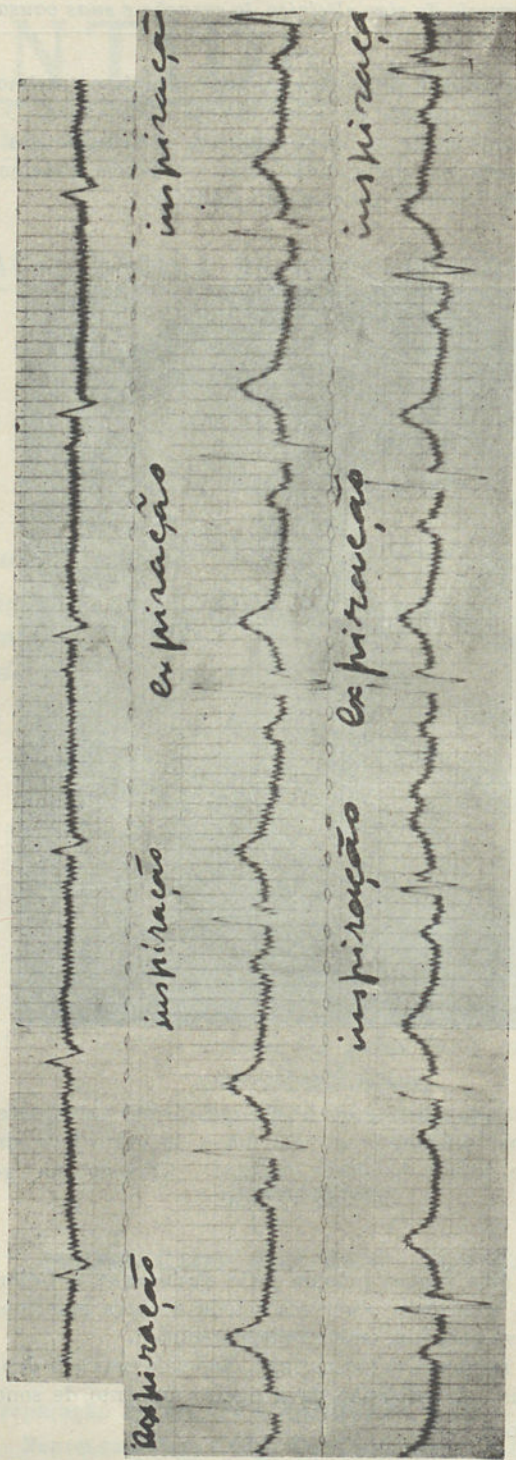 expiração inspiração expiração inspiraçã
inspiração expiração inspiraçã